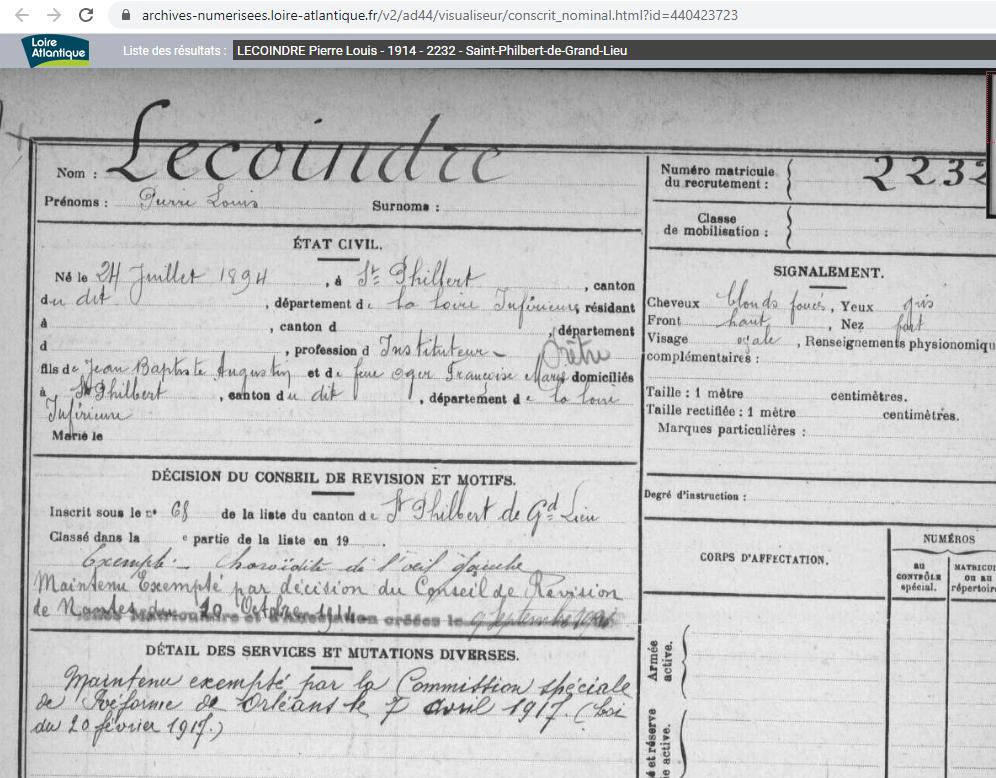 archives-numerisees.loire-atlantique.fr/v2/ad44/visualiseur/conscrit_nominal.html?id=440423723
Loire
Atlantique
Liste des résultats : LECOINDRE Pierre Louis - 1914 - 2232 - Saint-Philbert-de-Grand-Lieu
Nom : Lecoindre
Prénoms : Pierre Louis Surnoms :
ÉTAT CIVIL.
Né le 24 Juillet 1894, à St Philbert, canton
du dit, département de la Loire Inférieure, résidant
à , canton d , département
d , profession d Instituteur
Prêtre
fils de Jean Baptiste Augustin et de feue Oger Françoise Marie domiciliés
à St Philbert, canton du dit, département de la Loire
Inférieure
Marié le
DÉCISION DU CONSEIL DE REVISION ET MOTIFS.
Inscrit sous le no 68 de la liste du canton de St Philbert de Gd Lieu
Classé dans la e partie de la liste en 19
Exempté - Choroïdite de l'œil gauche
Maintenu Exempté par décision du Conseil de Révision
de Nantes 10 Octobre 1914
créées le 9 Septembre
DÉTAIL DES SERVICES ET MUTATIONS DIVERSES.
Maintenu exempté par la Commission spéciale
de Réforme de Orléans le 7 avril 1917. (Loi
du 20 février 1917.)
Numéro matricule
du recrutement : 2232
Classe
de mobilisation :
SIGNALEMENT.
Cheveux blonds foncés, Yeux gris
Front haut, Nez fort
Visage ovale, Renseignements physionomiqu
complémentaires :
Taille : 1 mètre centimètres.
Taille rectifiée : 1 mètre centimètres.
Marques particulières :
Degré d'instruction :
CORPS D'AFFECTATION.
NUMÉROS
au
CONTRÔLE
spécial.
MATRICUL
ou au
répertoire
Armée
active.
é et réserve
e active.